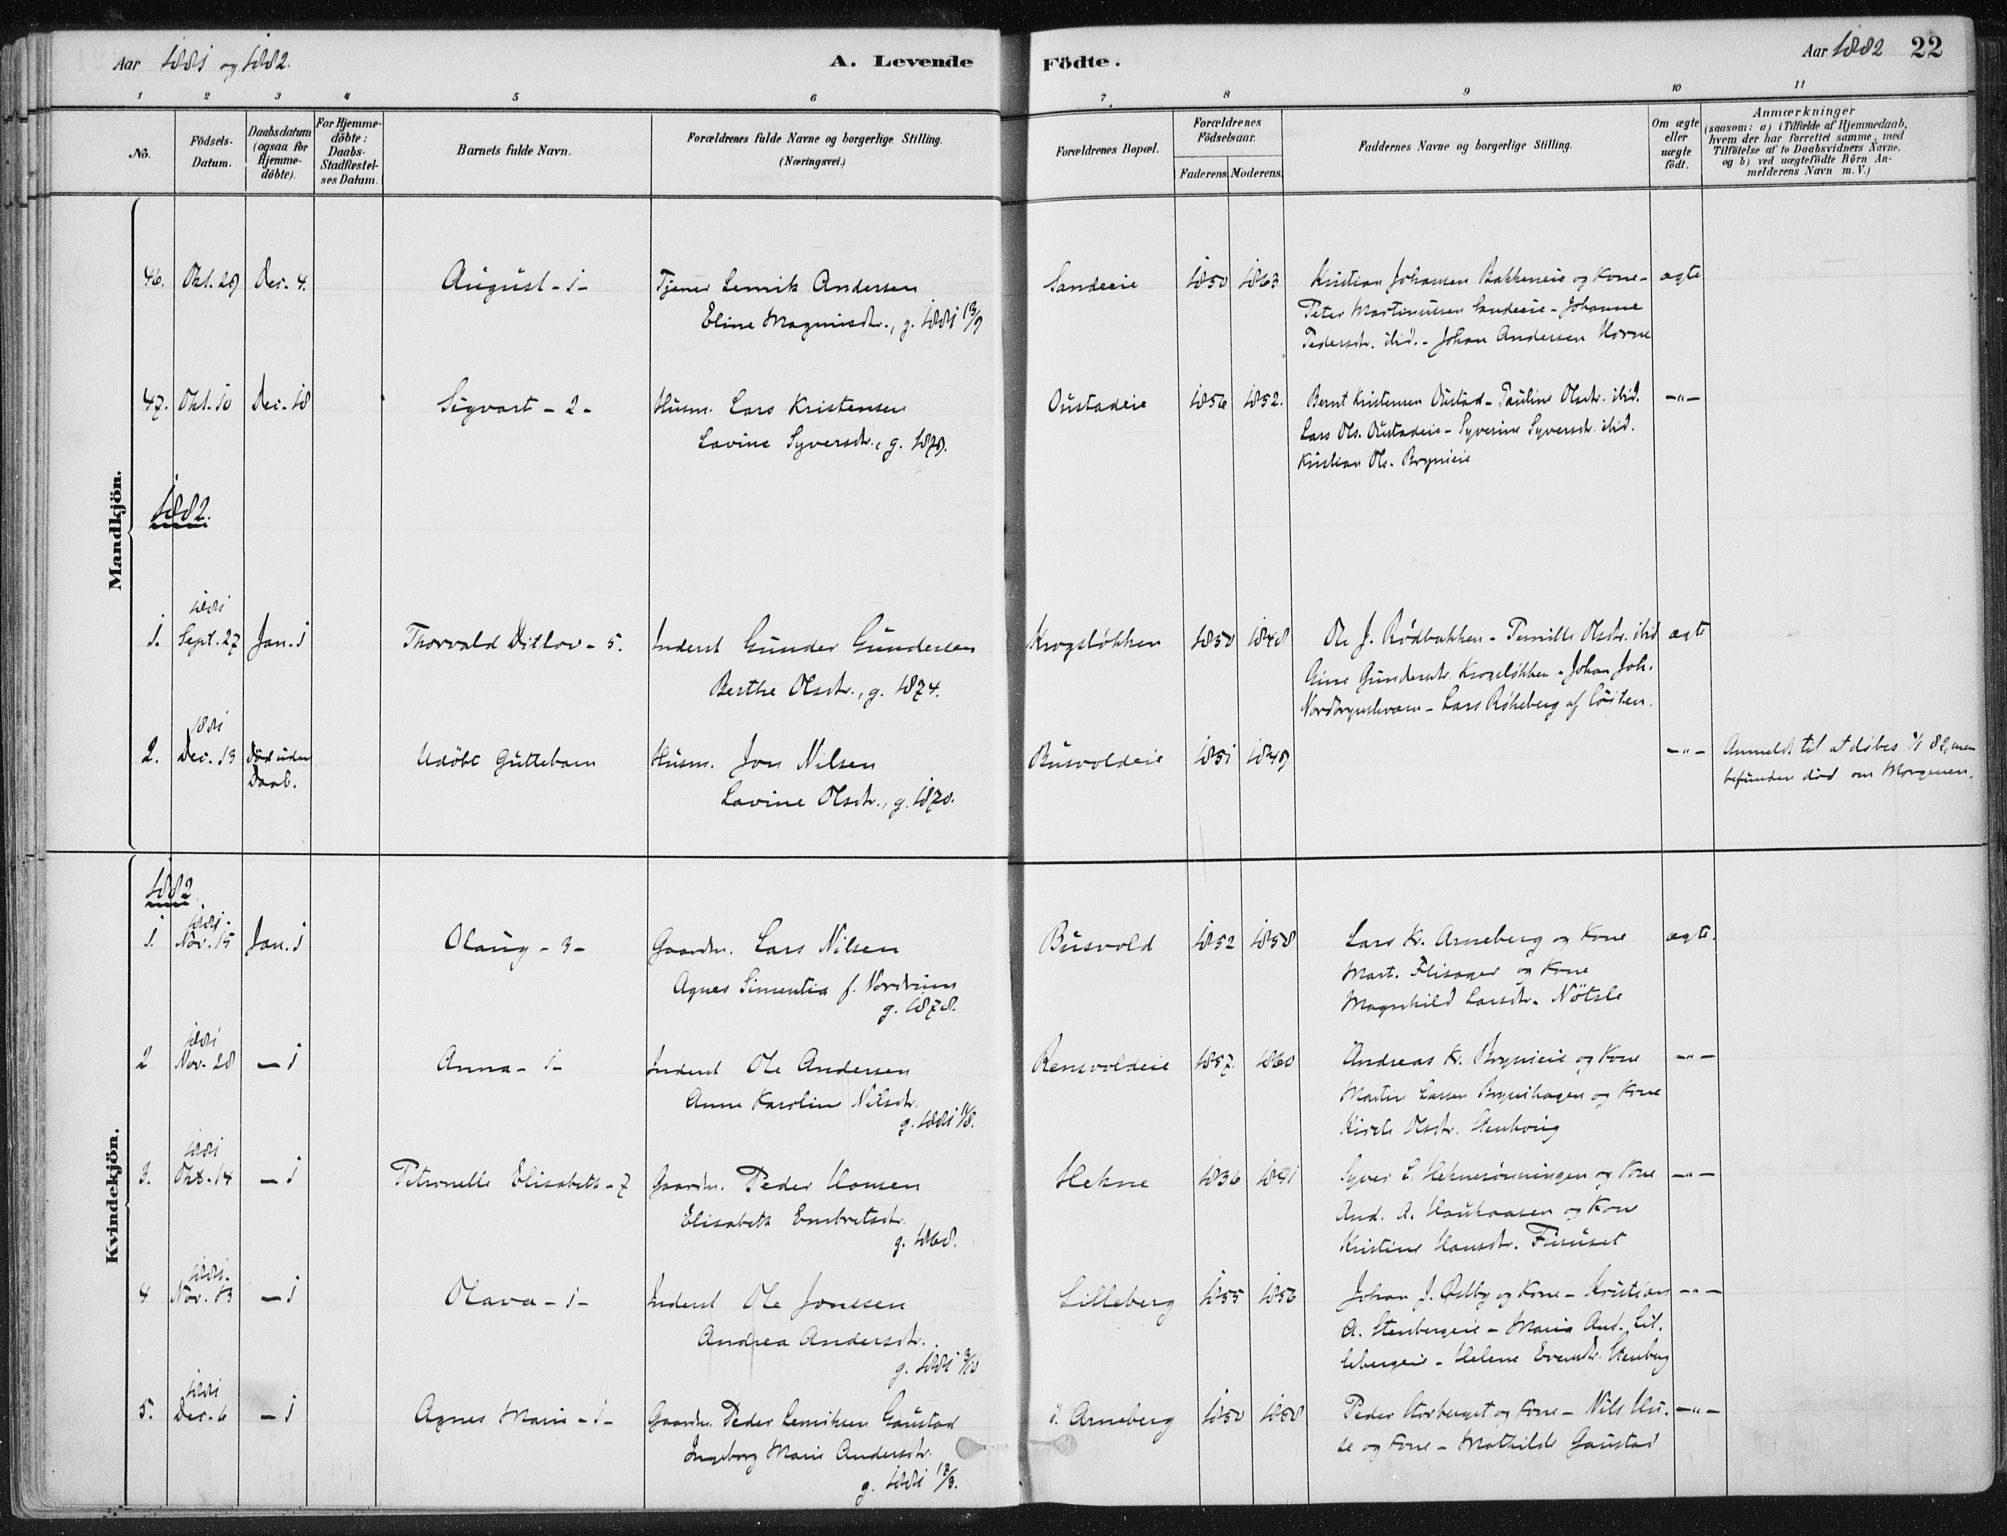 Aar 1881 og 1882.
A. Levende Födte.
Aar 1882 22
1 2 3 4 5 6 7. 8 9 10 11
No.
Födsels-Datum.
Daabsdatum (ogsaa for Hjemme-döbte).
For Hjemme-döbte: Daabs-Stadfæstel-ses Datum.
Barnets fulde Navn.
Forældrenes fulde Navne og borgerlige Stilling. (Næringsvei.)
Forældrenes Bopæl.
Forældrenes Födselsaar.
Faderens. Moderens.
Faddernes Navne og borgerlige Stilling.
Om ægte eller uægte født.
Anmærkninger
(saasom: a) i Tilfælde af Hjemmedaab,
hvem der har forrettet samme, med
Tilföielse af to Daabsvidners Navne,
og b) ved uægtefödte Börn An-
melderens Navn m. V.)
Mandkjön.
46. Okt. 29 Dec. 4. August - 1 - Tjener Lemik Andersen Sandeeie 1850 1863 Kristian Johansen Bakkeneie og Kone - ægte
Eline Magnusdtr., g. 1881 13/9 Peter Martinusen Sandeeie - Johanne
Pedersdtr. ibid. - Johan Andersen Horne
47. Okt. 10 Dec. 18 Sigvart - 2 - Husm. Lars Kristensen Oustadeie 1856 1852. Bernt Kristensen Oustad - Pauline Olsdtr. ibid. -"-
Lavine Syversdtr., g. 1879. Lars Ols. Oustadeie - Syverine Syversdtr. ibid.
Kristian Ols. Brynieie
1882.
1881
1. Sept. 27 Jan. 1 Thorvald Ditlov - 5. Inderst Gunder Gundersen Krogsløkken 1850 1848 Ole J. Rødbakken - Pernille Olsdtr. ibid ægte
Berthe Olsdtr., g. 1874. Gundersdtr. Krogsløkken - Johan Joh.
- Lars Røheberg af
1881
2. Dec. 13 Død uden Daab. Udöbt Guttebarn Husm. Jon Nilsen Busvoldeie 1851 1849 -"- Anmeldt til at døbes 1/1 82, men
Lavine Olsdtr., g. 1870. befunden død om Morgenen.
Kvindekjön.
1882
1881.
1. Nov. 15 Jan. 1 Olaug - 3 - Gaardm. Lars Nilsen Busvold 1852 1858 Lars Kr. Arneberg og Kone ægte.
Agnes Simentia f. Nordrum Mart. Flisager og Kone
g. 1878. Magnhild Larsdtr. Nötsle
1881
2 Nov. 28 - 1 Anna - 1 - Inderst Ole Andersen Rensvoldeie 1857. 1860 Andreas Kr. Brynieie og Kone -"-
Anne Karoline Nilsdtr. Martin Larsen Brynihagen og Kone
g. 1881 Olsdtr. Stenhoug
1881
3. Okt. 14 - 1 Petronelle Elisabeth - 7 Gaardm. Peder Hansen Hekne 1836 1841 Syver L. Heknerönningen og Kone -"-
Elisabeth Embretsdtr. And. A. Haukaasen og Kone
g. 1860. Kristine Hansdtr. Furuset
1881.
4 Nov. 13 - 1 Olava - 1 - Inderst Ole Jonssen Lilleberg 1855 1856 Johan J. og Kone - Kristian -"-
Andrea Andersdtr. A. Stenbergeie - Maria And. Lil-
g. 1881 9/10 lebergeie - Helene Evensdtr. Stenberg
1881
5. Dec. 6 - 1 Agnes Marie - 1 - Gaardm. Peder Lemiksen Gaustad ö. Arneberg 1850 1858 Peder Storberget og Kone - Nils Hu- -"-
Ingeborg Marie Andersdtr. se og Kone - Mathilde Gaustad
g. 1881 17/3.